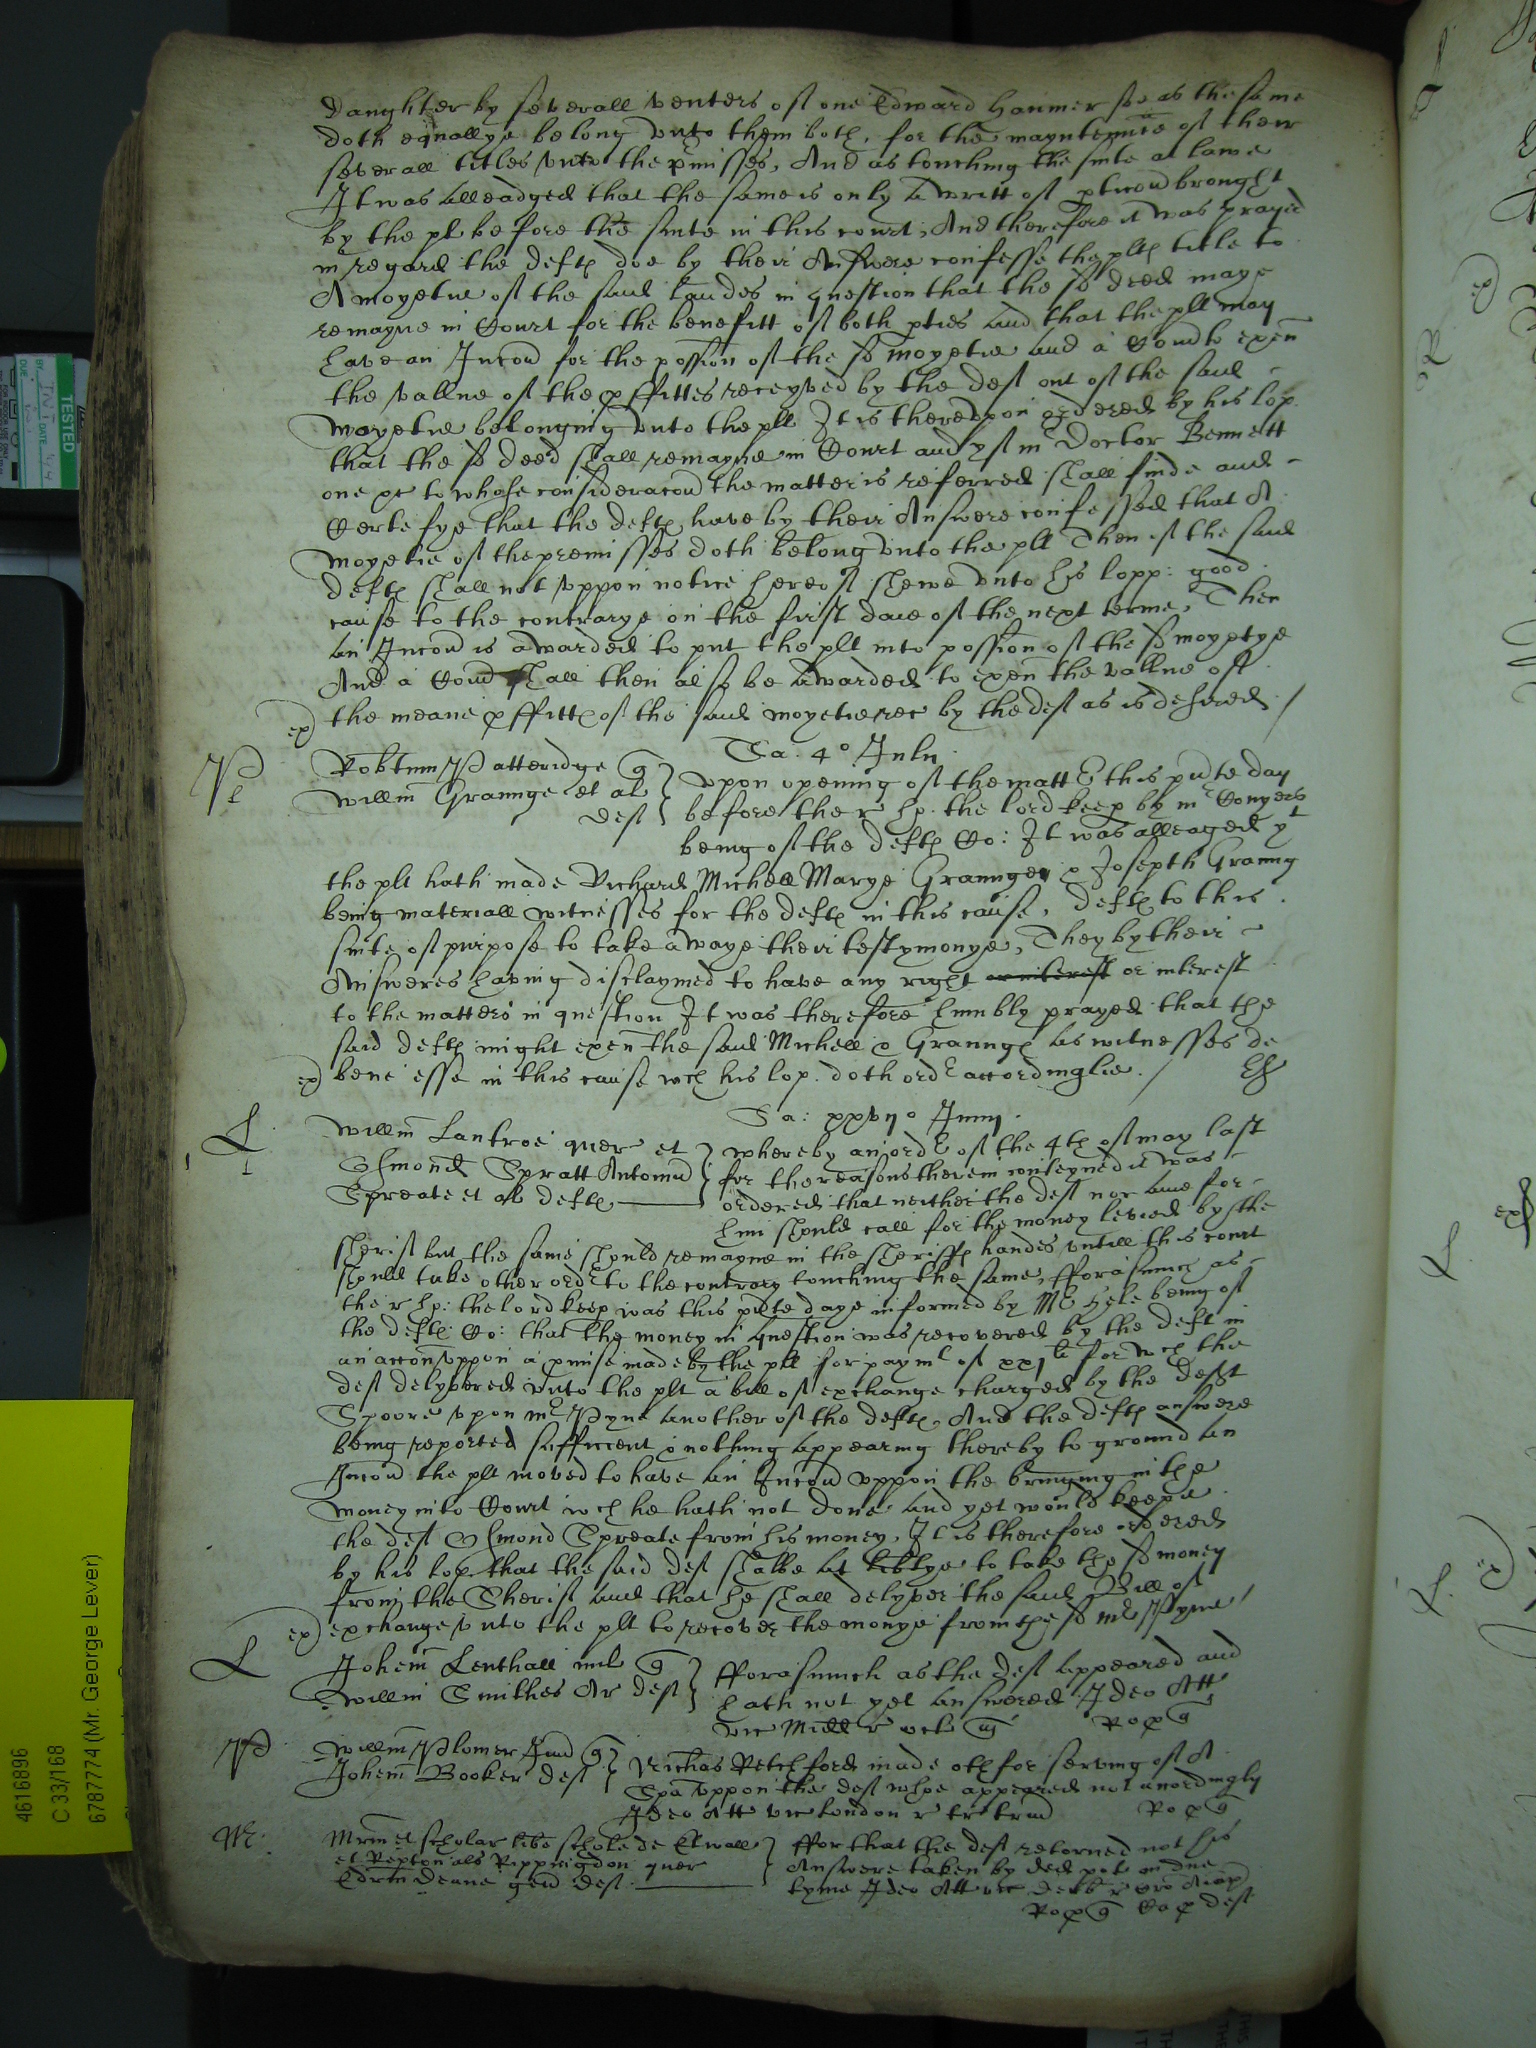 daughter by severall venters of one Edward Hanmer soe as the same
doth equallye belong unto them both, for the mayntennce of their
severall titles unto the pmisses, And as touching the suite at lawe
It was alleadged that the same is only a writt of pticon brought
by the pl before the suite in this court, And therefore it was prayed
in regard the defts doe by their Answere confesse the plts title to
A moyetie of the said landes in question that the sd deed maye
remayne in Court for the benefitt of both pties and that the pll may
have an Incon for the possion of the sd moyetie and a Comdto exen
the vallue of the pffittes receyved by the def out of the said
moyetie belonging unto the pll It is thereupon ordered by his lop.
that the sd deed shall remayne in Court and yf mr Doctor Bennett
one &c to whose consideracon the matter is referred shall finde and
Certefye that the defts have by their Answere confessed that A
moyetie of the premisses doth belong unto the plt Then if the said
defts shall not uppon notice hereof shewe unto his lopp: good
cause to the contrarye on the first daie of the next terme, Then
an Incon is awarded to put the plt into possion of the sd moyetye
And a Comd shall then also be awarded to exen the vallue of
the meane pffitts of the said moyetie rec by the def as is desired /
ex)
Sa. 4o Julii
Pe
Robtum Patteridge q
Willm Graunge et al
def
upon opening of the matter this pnte day
before the r. hp. the lord keep by mr Conyers
being of the defts Co: It was alleaged yt
the plt hath made Richard Michell Marye Graunge & Joseph Graung
being materiall witnesses for the defts in this cause, defts to this
suite of purpose to take awaye their testymonye, They by their
Answeres having disclaymed to have any right or interest or interest
to the matters in question It was therefore humbly prayed that the
said defts might exen the said Michell & Graunge as witnesses de
ex) bene esse in this cause wch his lop. doth order accordinglie. /
Sa: xxvii o Junii
L
Willm Lantroe quer et
Esmond Spratt Antomid
Spreate et al defts
whereby an order of the 4th of may last
for the reasons therein conteyned it was
ordered that neither the def nor anie for
him should call for the money levied by the
sherif but the same should remayne in the sheriffs handes untill this court
should take other order to the contrary touching the same, fforasmuch as
the r hp: the lord keep was this pnte daye informed by Mr Hele being of
the defts Co: that the money in question was recovered by the deft in
an accon uppon a pmise made by the pll for paymt of xxj li for wch the
def delyvered unto the plt a bill of exchange charged by the deft
Spoore upon mr Pyne another of the defts. And the defts answere
being reported sufficient & nothing appearing thereby to ground an
Incon the plt moved to have an Incon uppon the bringing in the
money into Court wch he hath not done and yet would keepe
the def Esmond Spreate from his money, It is therefore ordered
by his lop that the said def shalbe at libtye to take the sd money
from the Sherif and that he shall delyver the said Bill of
ex) exchange unto the plt to recover the monye from the sd mr Pyne /
L
Johem Lenthall mil q
Willm Smithes Ar def
fforasmuch as the def appeared and
hath not yet answered Ideo Att
vic Midd r
Ro p q
P
Willm Plomer Jun q
Johem Booker def
Nichas Retchford made oth for serving of A
Spa uppon the def whoe appeared not accordingly
Ideo Att vic London r
Ro p q
M:
Mrm et scholar libe schole de Etwall
et Repton als Reppingdon quer
Edrm Deane gen def.
ffor that the def retorned not his
Answere taken by ded pot in due
tyme Ideo Att vic Derb r
Ro p q Co p def
TESTED
4616896
C 33/168
6787774 (Mr. George Lever)